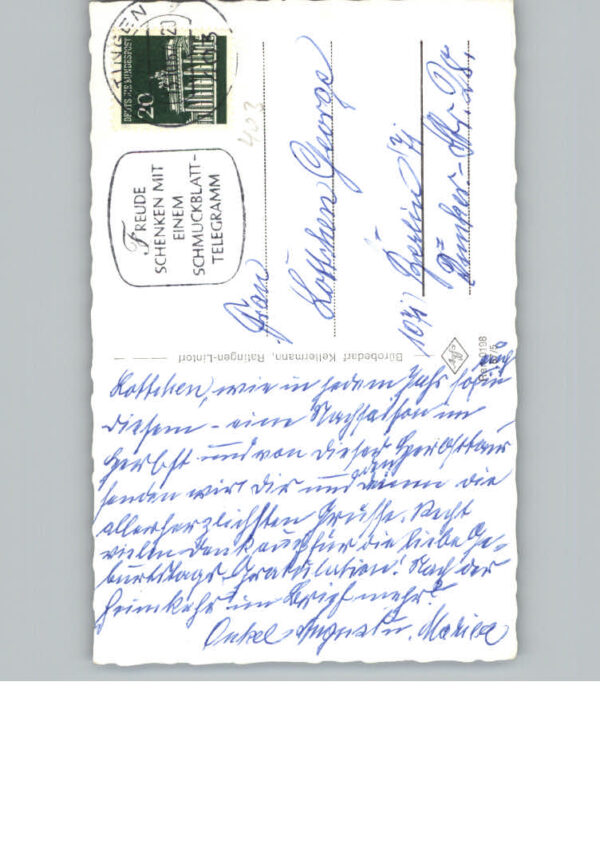 TINGEN
23
DEUTSCHE BUNDESPOST
20
403
FREUDE
SCHENKEN MIT
EINEM
SCHMUCKBLATT-
TELEGRAMM
Frau
Lottchen George
Berlin
Dunker-Str. 28.
Bürobedarf Kellermann, Ratingen-Lintorf
Agfa
Lottchen, wie in jedem Jahr so auch in
diesem - eine Nachsaison im
Herbst und von dieser
senden wir Dir und die
allerherzlichsten Grüsse. Recht
vielen Dank auch für die liebe Ge-
burtstags-Gratulation! Nach der
Heimkehr im Brief mehr!
Onkel Augustin, Maria